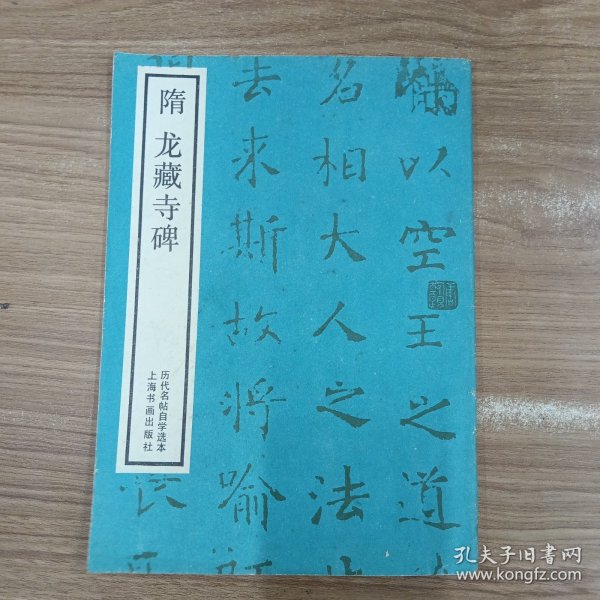 隋 龙藏寺碑
历代名帖自学选本
上海书画出版社
以空王之道
名相大人之法
去来斯故将喻
孔夫子旧书网
www.kongfz.com